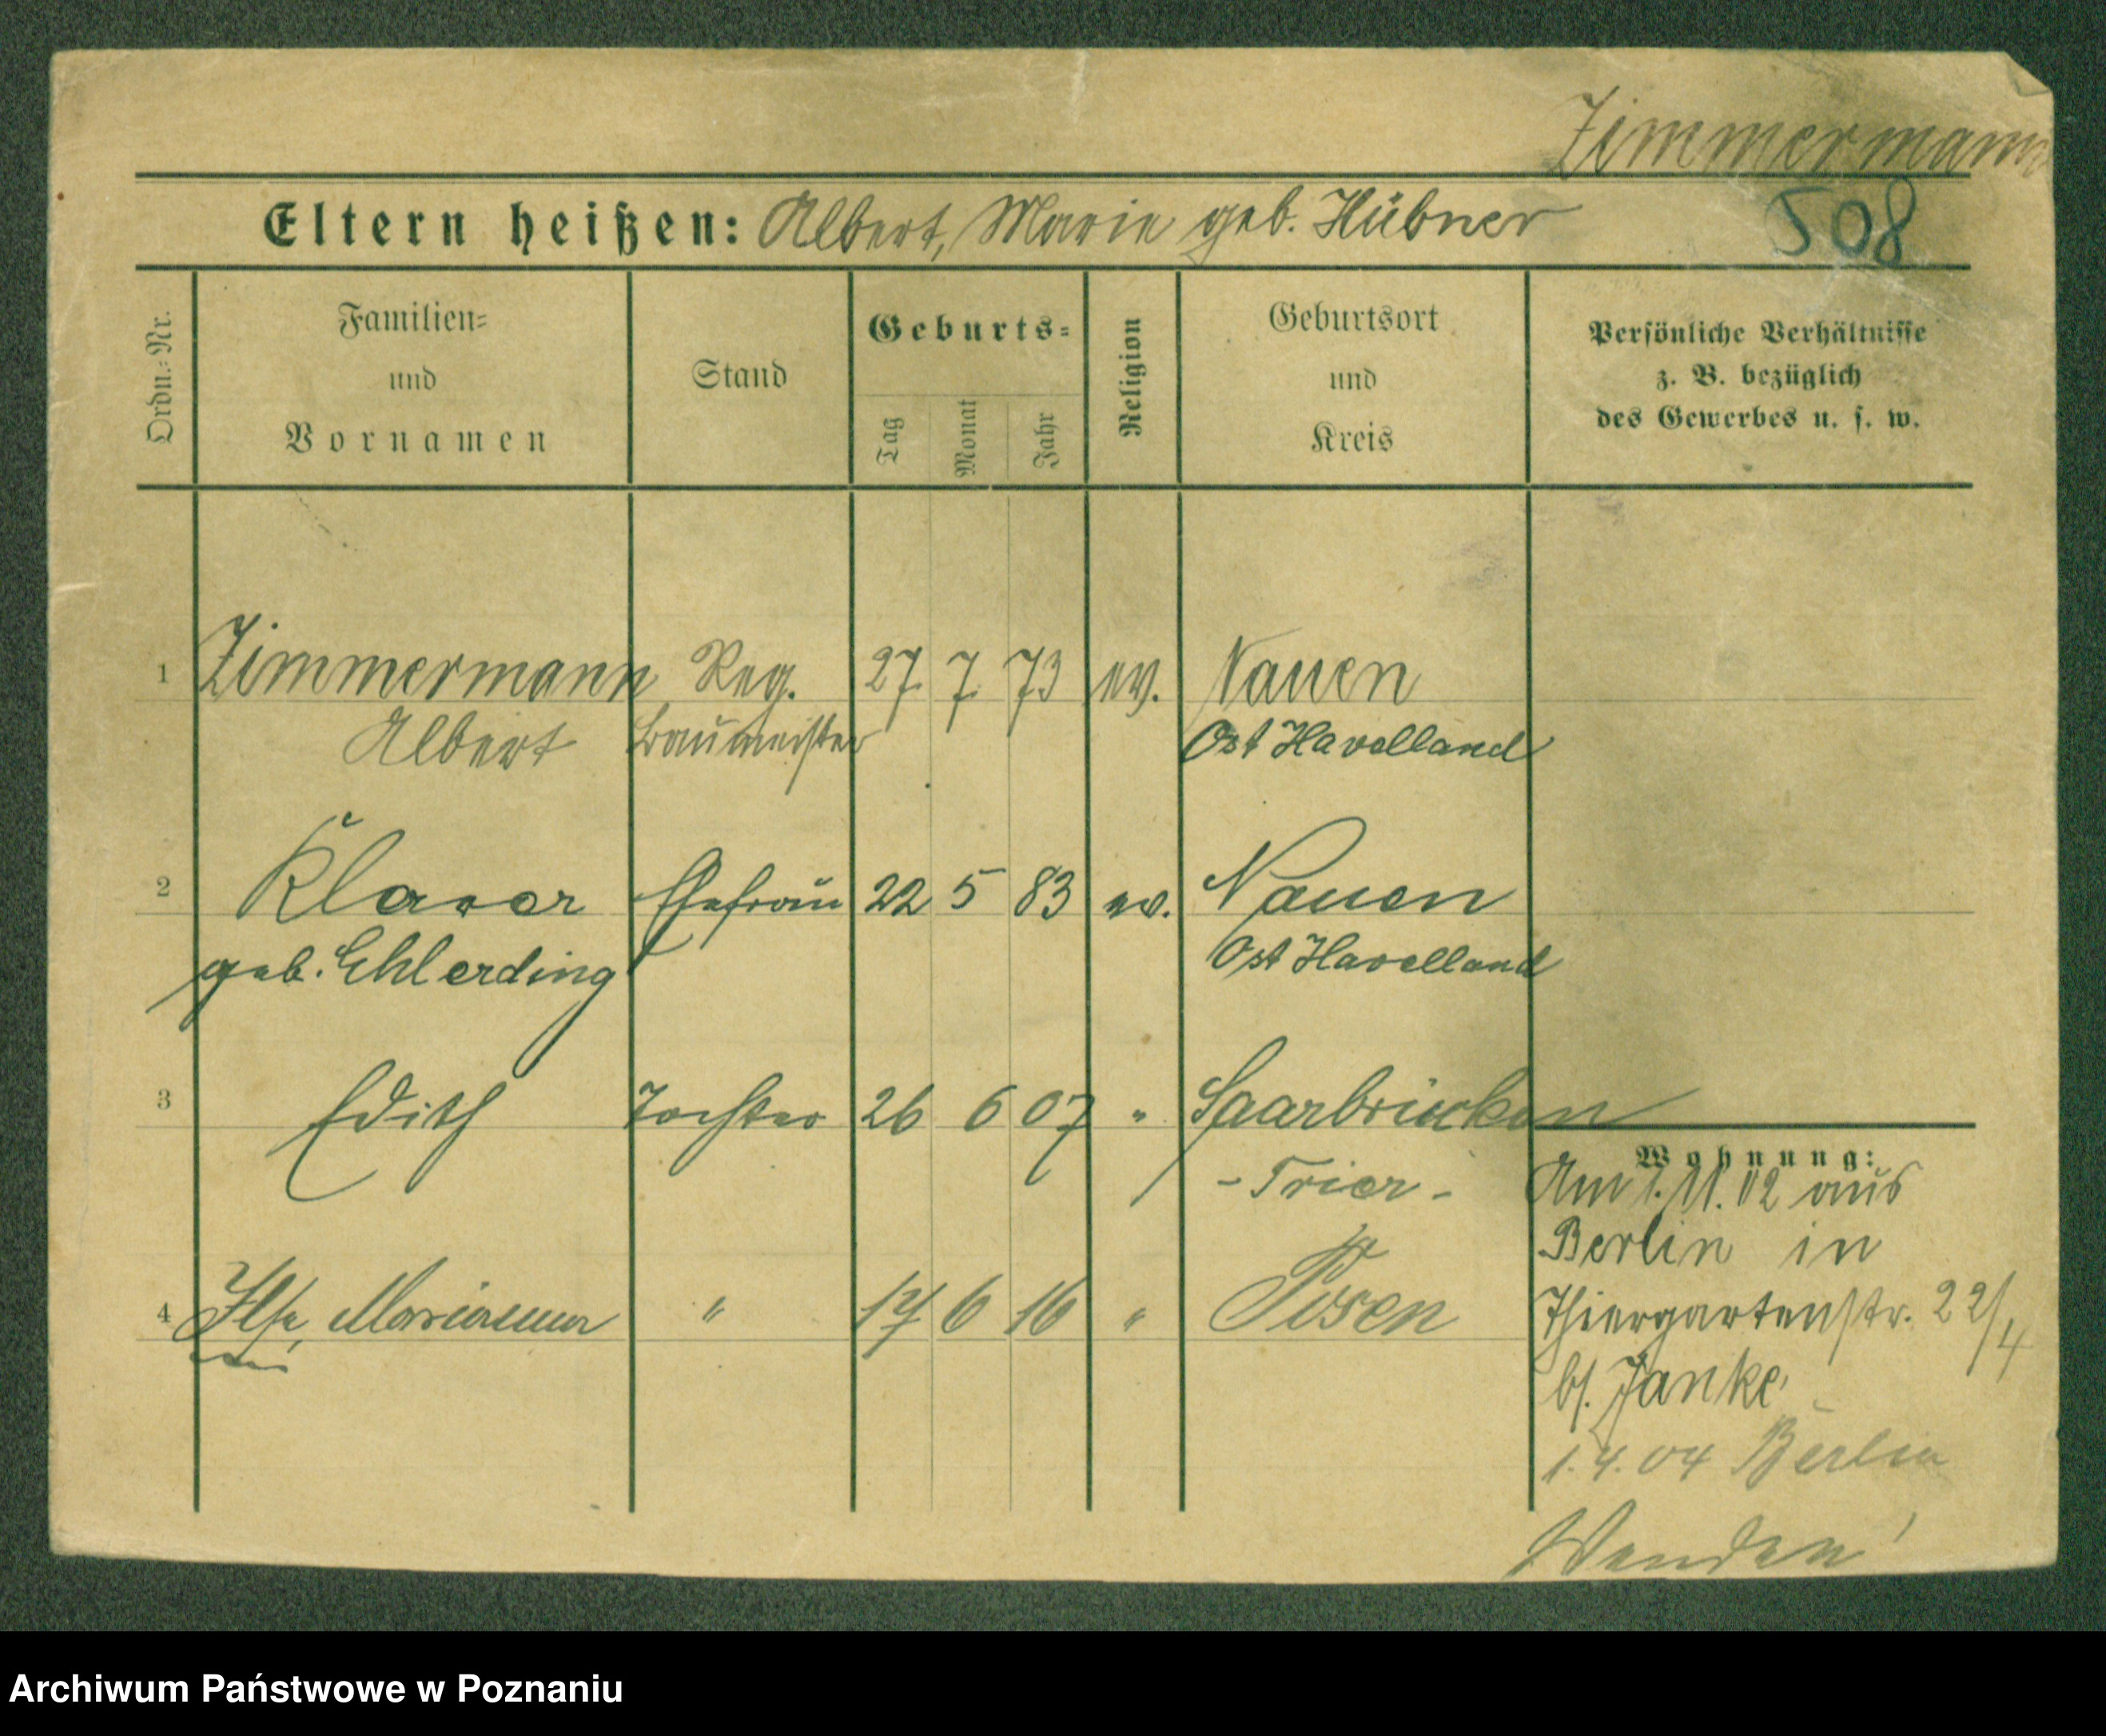 Zimmermann
Eltern heißen: Albert, Marie geb. Hübner
508
Ordn.-Nr.
Familien-
und
Vornamen
Stand
Geburts-
Tag
Monat
Jahr
Religion
Geburtsort
und
Kreis
Persönliche Verhältnisse
z. B. bezüglich
des Gewerbes u. s. w.
1 Zimmermann Reg. 27. 7. 73 ev. Nauen
Albert Baumeister Ost Havelland
2 Ehefrau 22 5 83 ev. Nauen
geb. Ehlerding Ost Havelland
3 Edith Tochter 26 6 07 " Saarbrücken
- Trier -
4 Ilse, Marianna " 17 6 16 " Posen
Wohnung:
Am 1. 11. 02 aus
Berlin in
Thiergartenstr. 22/4
b/. Janke
1. 4. 04 Berlin
Wenden!
Archiwum Państwowe w Poznaniu